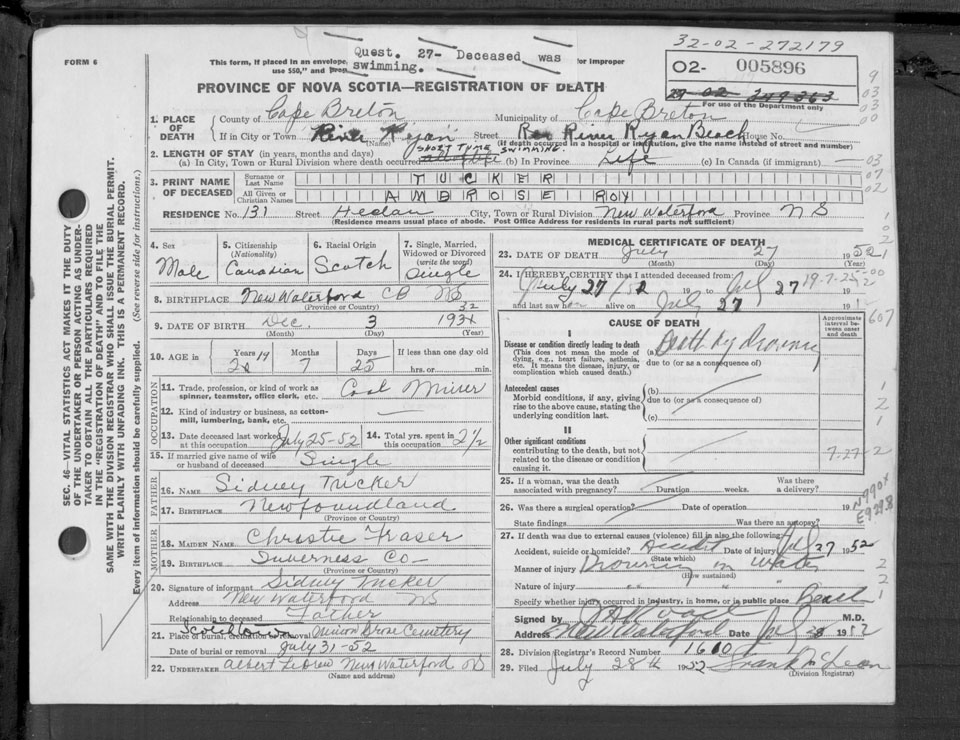 32-02-272179
Quest. 27- Deceased was
swimming.
FORM 6
This form, if placed in an envelope, for improper
use $50," and
02- 005896
27 02 249363
For use of the Department only
PROVINCE OF NOVA SCOTIA—REGISTRATION OF DEATH
1. PLACE OF DEATH
County of Cape Breton Municipality of Cape Breton
If in City or Town River Ryan Street River Ryan Beach House No.
(Name) (If death occurred in a hospital or institution, give the name instead of street and number)
2. LENGTH OF STAY (in years, months and days) SHORT TIME SWIMMING.
(a) In City, Town or Rural Division where death occurred (b) In Province Life (c) In Canada (if immigrant) —
3. PRINT NAME OF DECEASED
Surname or Last Name TUCKER
All Given or Christian Names AMBROSE ROY
RESIDENCE No. 131 Street City, Town or Rural Division New Waterford Province N S
(Residence means usual place of abode. Post Office Address for residents in rural parts not sufficient)
4. Sex Male
5. Citizenship (Nationality) Canadian
6. Racial Origin Scotch
7. Single, Married, Widowed or Divorced (write the word) Single
8. BIRTHPLACE New Waterford CB NS
(Province or Country)
32
9. DATE OF BIRTH Dec. 3 193
(Month) (Day) (Year)
10. AGE in Years 19 Months 7 Days 25 If less than one day old
hrs. or min.
OCCUPATION
11. Trade, profession, or kind of work as spinner, teamster, office clerk, etc. Coal Miner
12. Kind of industry or business, as cotton-mill, lumbering, bank, etc. —
13. Date deceased last worked at this occupation July 25-52
14. Total yrs. spent in this occupation 2 1/2
15. If married give name of wife or husband of deceased Single
FATHER
16. NAME Sidney Tucker
17. BIRTHPLACE Newfoundland
(Province or Country)
MOTHER
18. MAIDEN NAME Christie Fraser
19. BIRTHPLACE Inverness Co
(Province or Country)
20. Signature of informant Sidney Tucker
Address New Waterford NS
Relationship to deceased Father
Scotchtown
21. Place of burial, cremation or removal Union Grove Cemetery
Date of burial or removal July 31-52
22. UNDERTAKER Albert New Waterford NS
(Name and address)
MEDICAL CERTIFICATE OF DEATH
23. DATE OF DEATH July 27 1952
(Month) (Day) (Year)
24. I HEREBY CERTIFY that I attended deceased from
July 27/52 19 to July 27 19
and last saw h alive on July 27 19
19-7-25
CAUSE OF DEATH
Approximate interval between onset and death
I
Disease or condition directly leading to death
(This does not mean the mode of dying, e.g., heart failure, asthenia, etc. It means the disease, injury, or complication which caused death.
(a) Death by Drowning
due to (or as a consequence of)
Antecedent causes
Morbid conditions, if any, giving rise to the above cause, stating the underlying condition last.
(b)
due to (or as a consequence of)
(c)
II
Other significant conditions contributing to the death, but not related to the disease or condition causing it.
7-27-2
25. If a woman, was the death associated with pregnancy? Duration weeks. Was there a delivery?
26. Was there a surgical operation? Date of operation 19
State findings Was there an autopsy?
N990X
E929.8
27. If death was due to external causes (violence) fill in also the following:
Accident, suicide or homicide? Accident Date of injury July 27 1952
(State which)
Manner of injury Drowning in water
(How sustained)
Nature of injury " " "
Specify whether injury occurred in industry, in home, or in public place Beach
Signed by M.D.
Address New Waterford Date July 28 1952
28. Division Registrar's Record Number 1610
29. Filed July 28th 1952
(Division Registrar)
SEC. 46—VITAL STATISTICS ACT MAKES IT THE DUTY
OF THE UNDERTAKER OR PERSON ACTING AS UNDER-
TAKER TO OBTAIN ALL THE PARTICULARS REQUIRED
IN THE "REGISTRATION OF DEATH" AND TO FILE THE
SAME WITH THE DIVISION REGISTRAR WHO SHALL ISSUE THE BURIAL PERMIT.
WRITE PLAINLY WITH UNFADING INK. THIS IS A PERMANENT RECORD.
Every item of information should be carefully supplied. (See reverse side for instructions.)